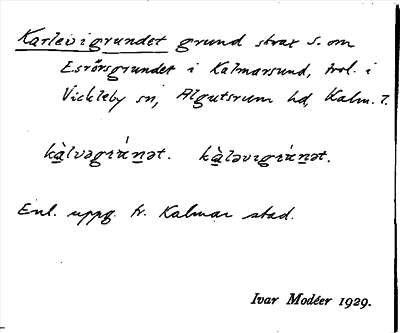 Karlevigrundet grund strax s. om
Esrörsgrundet i Kalmarsund, trol. i
Vickleby sn, Algutsrum hd, Kalm. l.
kàlvəgrúnət. kàləvigrúnət.
Enl. uppg. fr. Kalmar stad.
Ivar Modéer 1929.